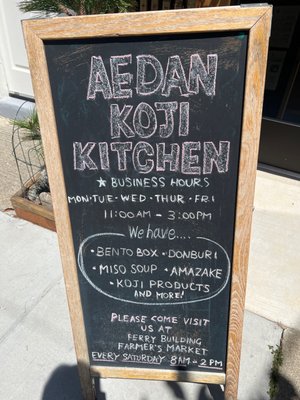 AEDAN
KOJI
KITCHEN
★ BUSINESS HOURS
MON·TUE·WED·THUR·FRI
11:00AM - 3:00PM
We have....
·BENTO BOX ·DONBURI
·MISO SOUP ·AMAZAKE
·KOJI PRODUCTS
AND MORE!
PLEASE COME VISIT
US AT
FERRY BUILDING
FARMER'S MARKET
EVERY SATURDAY 8AM-2PM